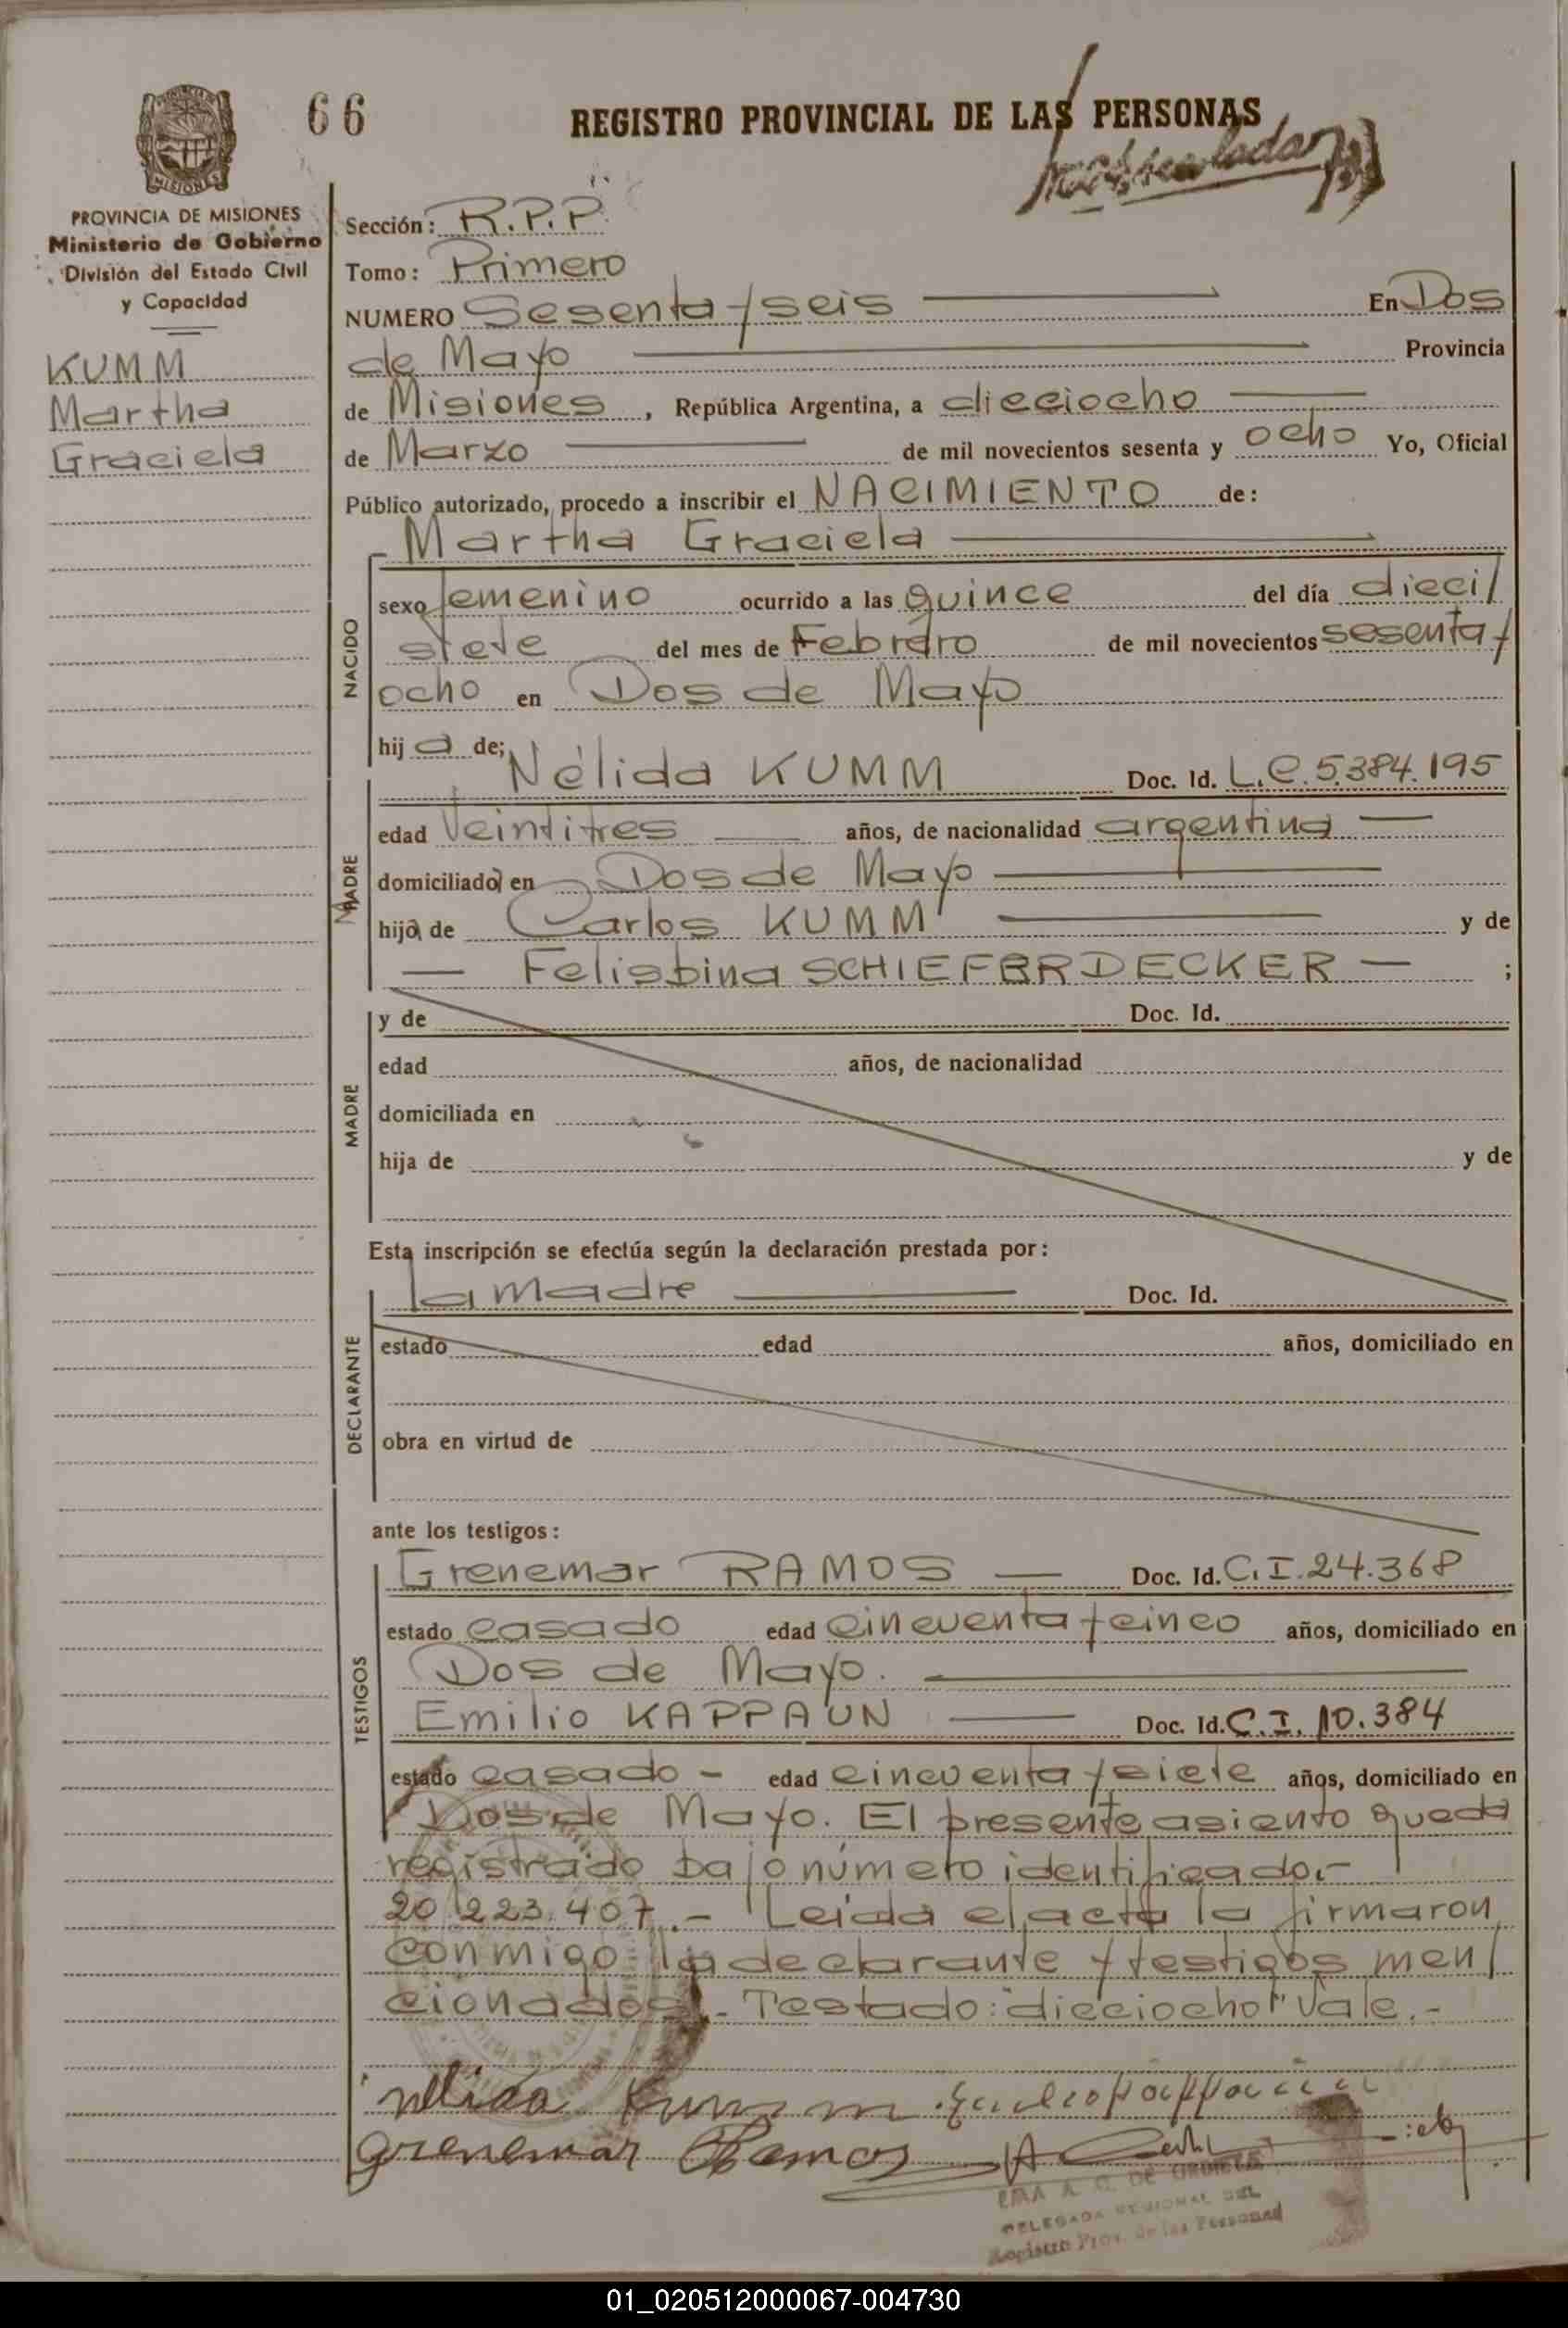 66
REGISTRO PROVINCIAL DE LAS PERSONAS
MISIONES
PROVINCIA DE MISIONES
Ministerio de Gobierno
División del Estado Civil
y Capacidad
KUMM
Martha
Graciela
Sección: R.P.P.
Tomo: Primero
NUMERO Sesenta y seis En Dos
de Mayo Provincia
de Misiones, República Argentina, a dieciocho
de Marzo de mil novecientos sesenta y ocho Yo, Oficial
Público autorizado, procedo a inscribir el NACIMIENTO de:
Martha Graciela
NACIDO
sexo femenino ocurrido a las quince del día dieci/
siete del mes de Febrero de mil novecientos sesenta y
ocho en Dos de Mayo
hija de; Nélida KUMM Doc. Id. L.C.5.384.195
MADRE
edad Veintitres años, de nacionalidad argentina
domiciliada en Dos de Mayo
hija de Carlos KUMM y de
Felisbina SCHIEFERDECKER ;
MADRE
y de Doc. Id.
edad años, de nacionalidad
domiciliada en
hija de y de
Esta inscripción se efectúa según la declaración prestada por:
DECLARANTE
la madre Doc. Id.
estado edad años, domiciliado en
obra en virtud de
ante los testigos:
TESTIGOS
Grenemar RAMOS Doc. Id. C.I.24.368
estado casado edad cincuenta y cinco años, domiciliado en
Dos de Mayo.
Emilio KAPPAUN Doc. Id. C.I. 10.384
estado casado - edad cincuenta y siete años, domiciliado en
Dos de Mayo. El presente asiento queda
registrado bajo número identificador-
20.223.407.- Leida el acta la firmaron
conmigo la declarante y testigos men/
cionados.- Testado: "dieciocho" Vale.-
nelida Kumm Emilio Kappaun
Grenemar Ramos
DELEGADA REGIONAL DEL
Registro Prov. de las Personas
01_020512000067-004730